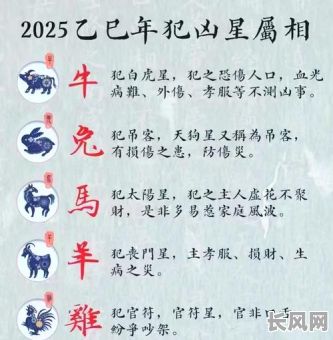 2025乙巳年犯凶星屬相
牛
犯白虎星，犯之恐傷人口，血光
病難、外傷、孝服等不測凶事。
兔
犯吊客，天狗星又稱為吊客，
有損傷之患，防傷災。
馬
犯太陽星，犯之主人虛花不聚
財，是非多易惹家庭風波。
羊
犯喪門星，主孝服、損財、生
病之災。
雞
犯官符，官符星，官非口舌，
紛爭吵架。
长风网